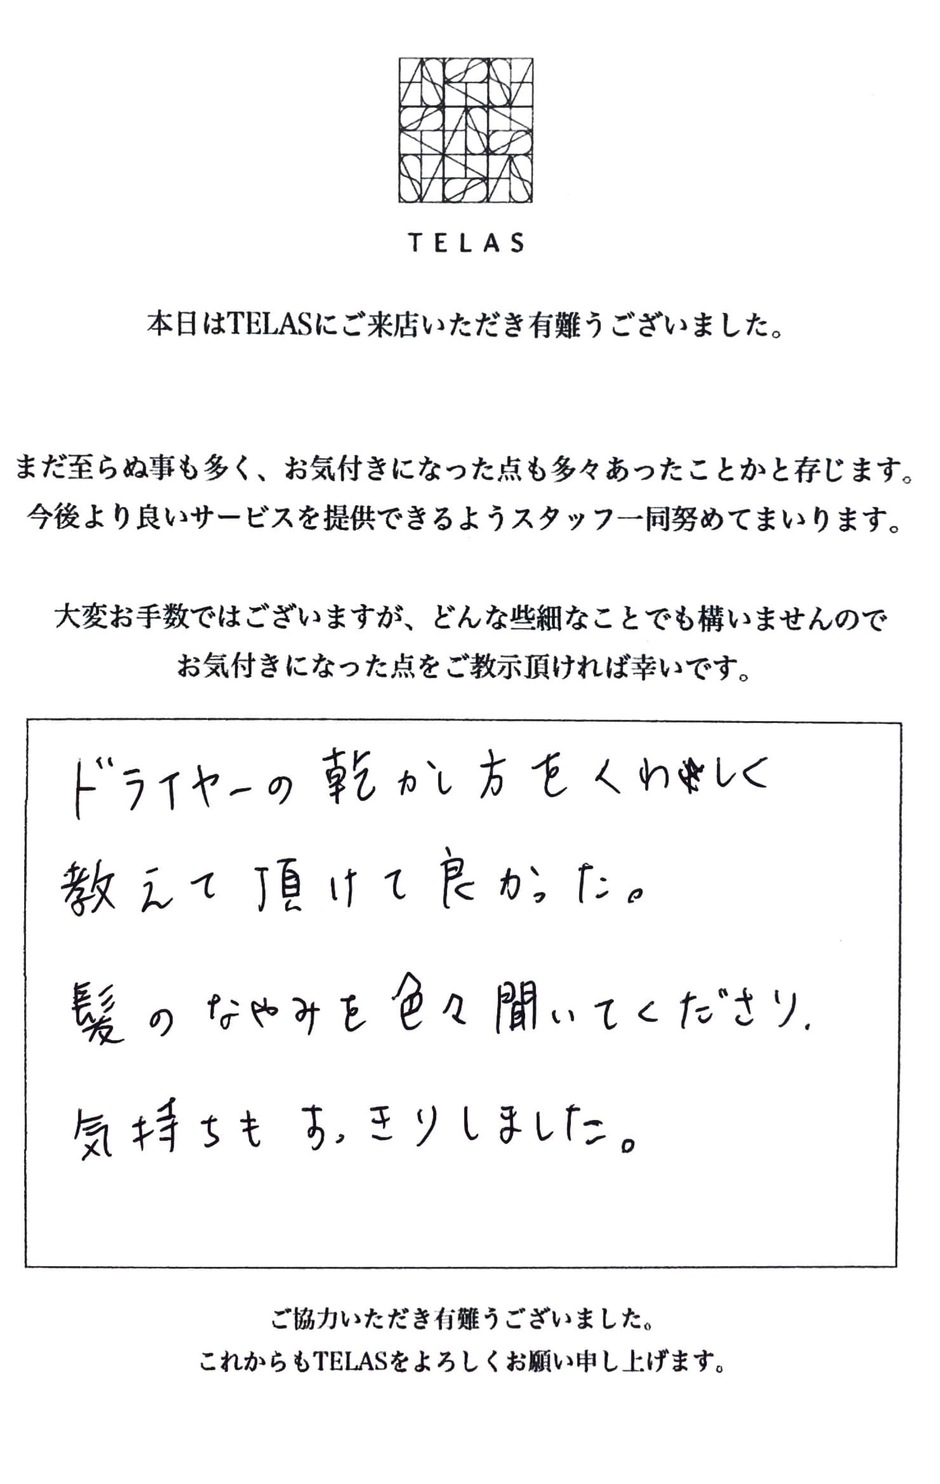 TELAS
本日はTELASにご来店いただき有難うございました。
まだ至らぬ事も多く、お気付きになった点も多々あったことかと存じます。
今後より良いサービスを提供できるようスタッフ一同努めてまいります。
大変お手数ではございますが、どんな些細なことでも構いませんので
お気付きになった点をご教示頂ければ幸いです。
ドライヤーの乾かし方をくわしく
教えて頂けて良かった。
髪のなやみを色々聞いてくださり、
気持ちもすっきりしました。
ご協力いただき有難うございました。
これからもTELASをよろしくお願い申し上げます。